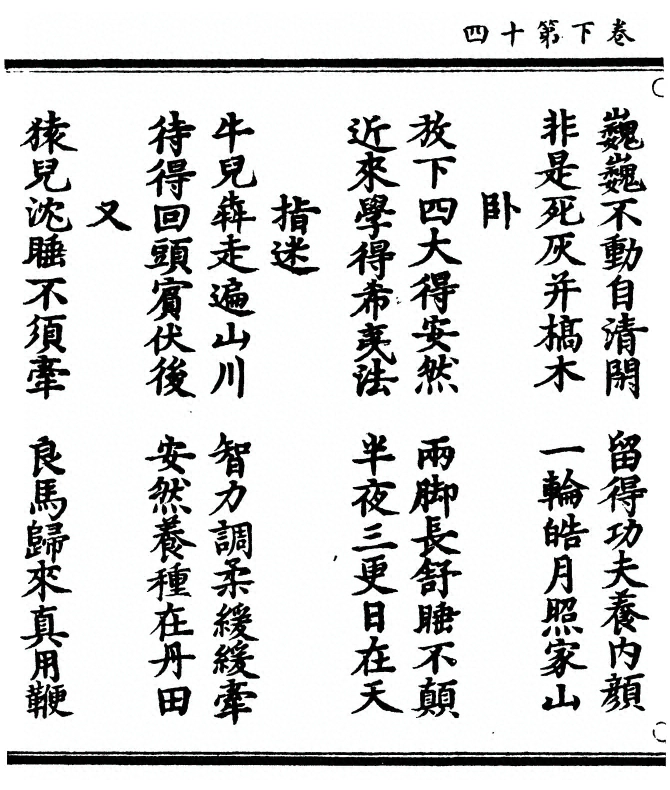 卷下第十四
巍巍不動自清閑　留得功夫養內顏
非是死灰并槁木　一輪皓月照家山
卧
放下四大得安然　兩脚長舒睡不顛
近來學得希夷法　半夜三更日在天
指迷
牛兒犇走遍山川　智力調柔緩緩牽
待得回頭賓伏後　安然養種在丹田
又
猿兒沈睡不須牽　良馬歸來真用鞭